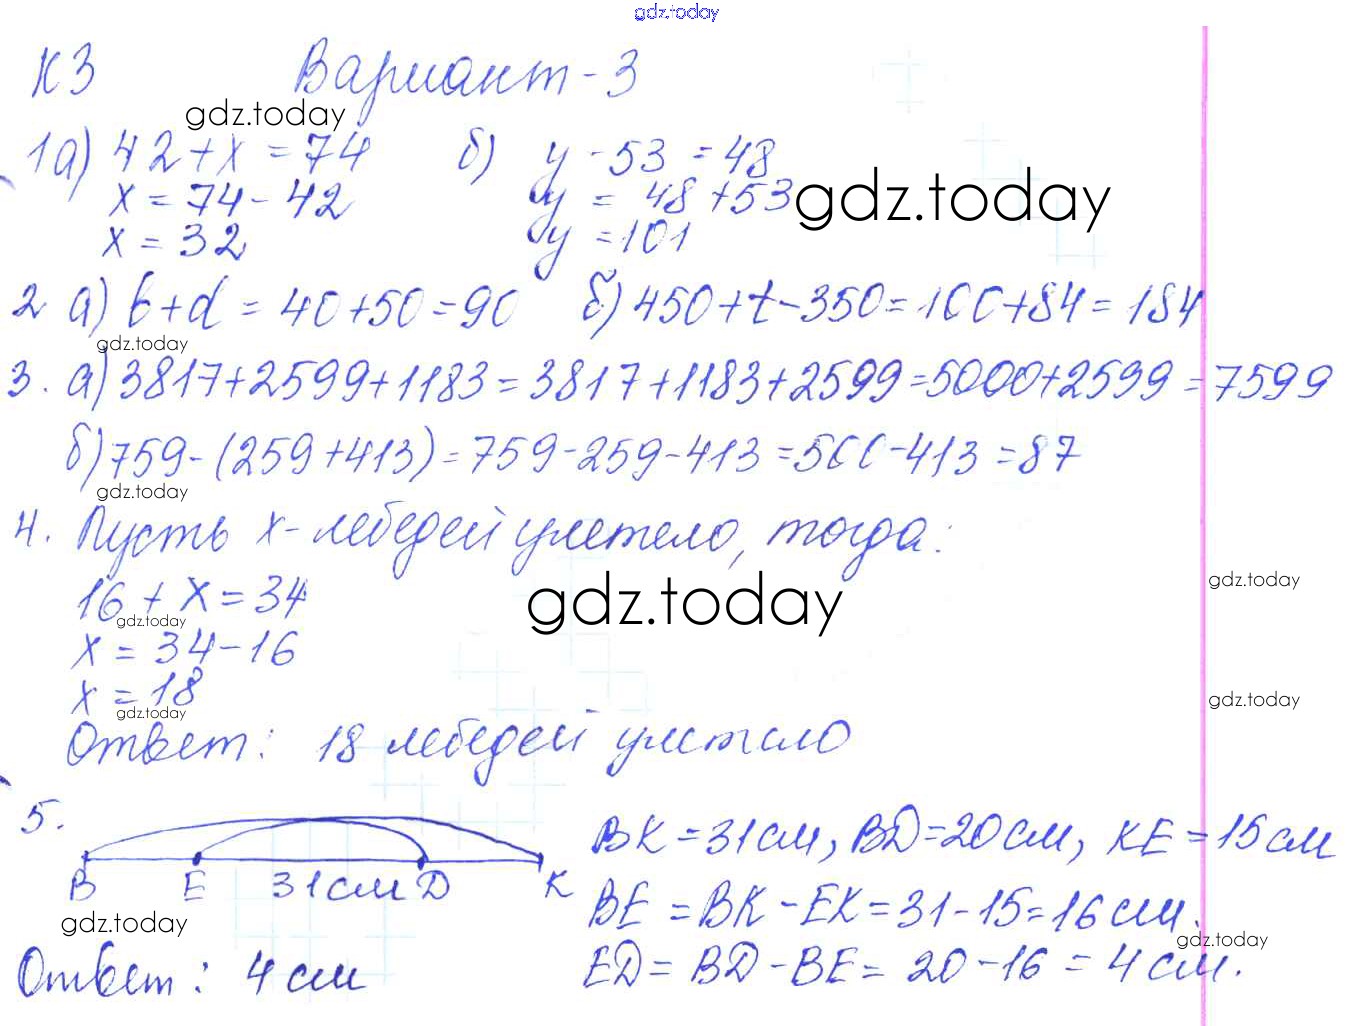 gdz.today
К3 Вариант-3
gdz.today
1а) 42+x=74 б) y-53=48
x=74-42 y=48+53
gdz.today
x=32 y=101
2 а) b+d=40+50=90 б) 450+t-350=100+84=184
gdz.today
3. а) 3817+2599+1183=3817+1183+2599=5000+2599=7599
б) 759-(259+413)=759-259-413=500-413=87
gdz.today
4. Пусть x-лебедей улетело, тогда:
16+x=34
gdz.today
gdz.today
gdz.today
x=34-16
x=18
gdz.today
gdz.today
Ответ: 18 лебедей улетело
5.
BK=31см, BD=20см, KE=15см
B E 31см D K
BE=BK-EK=31-15=16см.
gdz.today
gdz.today
ED=BD-BE=20-16=4см.
Ответ: 4см